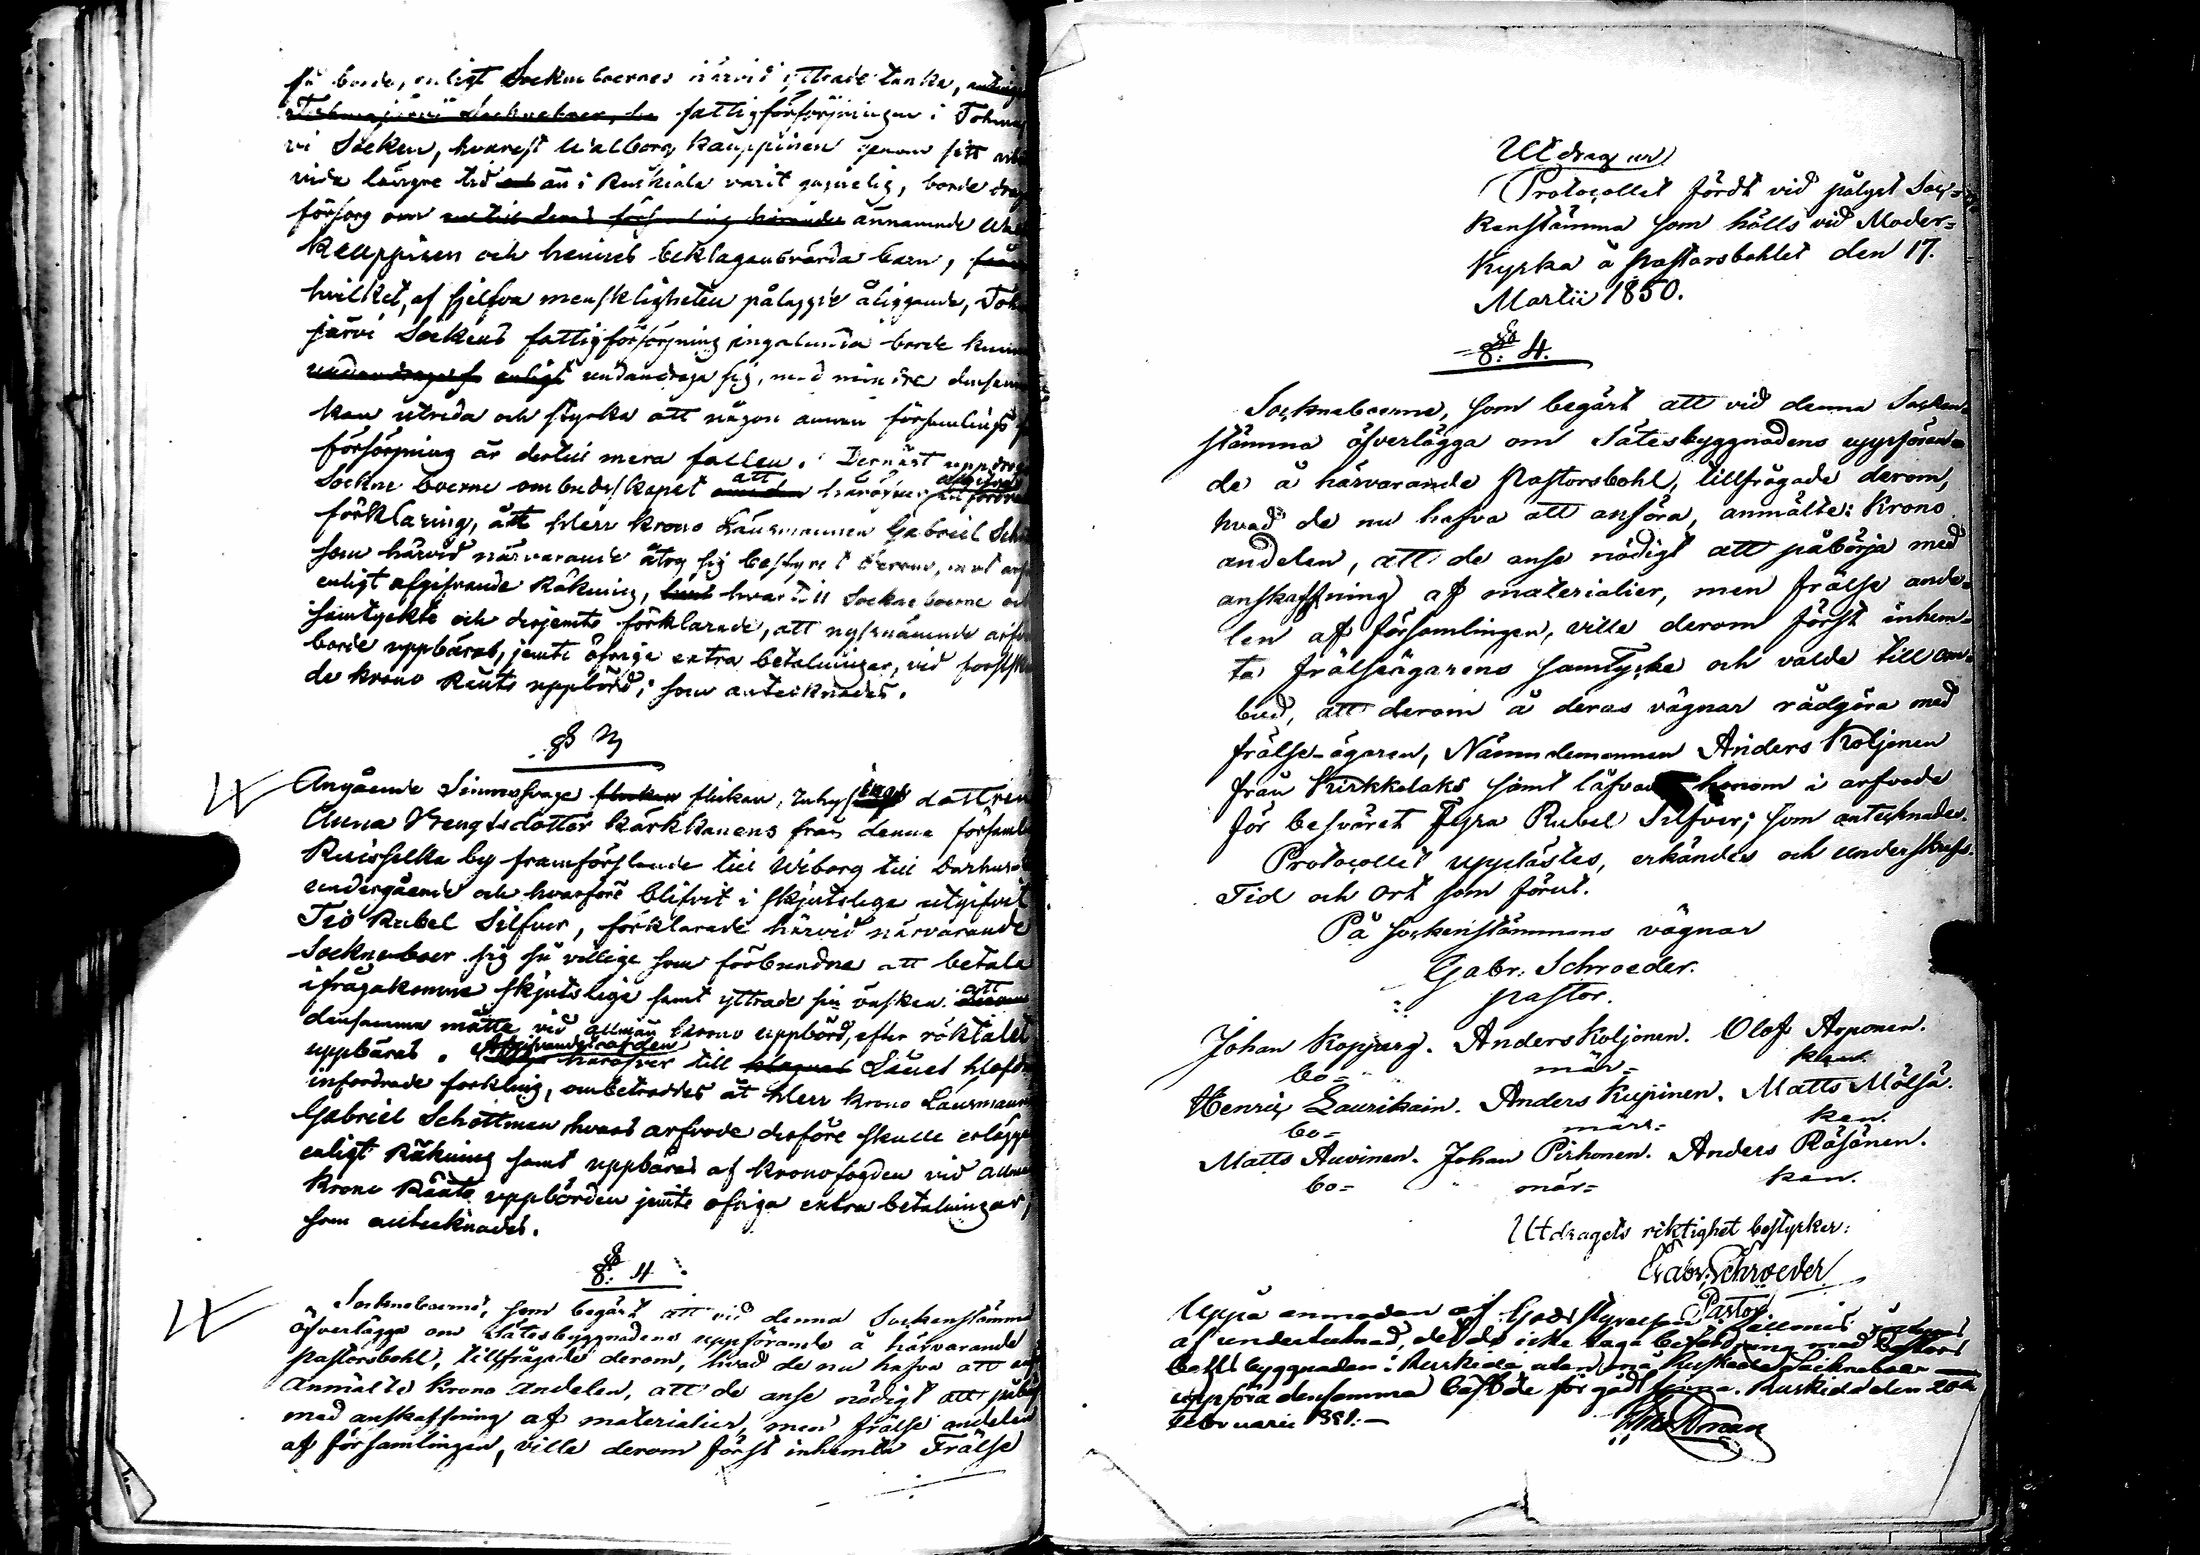 så borde, enligt Sockneboernes härvid yttrade tanka,
fattigförsörjningen i Tohma
vi Socken, hvarest Walborg Kauppinen genom sitt
vida längre tid än i Ruskiala varit gagnelig, borde drag
försorg om ännämnde
Kauppinen och hennes beklagansvärda barn,
hvilket, af sjelfva menskligheten pålaggde åliggande, Toh
järvi Sockens fattigförsörjning ingalunda borde kunna
enligt undandraga sig, med mindre densamma
kan utreda och styrka att någon annan församlings
försörjning är dertill mera fallen. Dernäst uppdrog
Sockne boerne ombudsskapet att häröfver afgifva
förklaring, åt Herr Krono Länsmannen Gabriel Schött
som härvid närvarande åtog sig bestyret derom, mot
enligt afgifvande Räkning, hvartill Sockneboerne
samtyckte och derjemte förklarade, att nyssnämnde arfvo
borde uppbäras, jemte öfrige extra betalningar, vid förstskе
de krono Ränte uppbörd; som antecknades.
§ 3
Angående Sinnessvaga flickan, Inhyses dottren
Anna Bengtsdotter Kärkkänens från denna församl
Ruisselka by framförslande till Wiborg till Darhus
undergående och hvarföre blifvit i skjutslega utgifvit
Tio Rubel Silfver, förklarade härvid närvarande
Sockneboer sig så villige som förbundne att betala
ifrågakomne skjutslega samt yttrade sin önskan att
densamma måtte vid allmän Krono uppbörd, efter röktalet
uppbäras. Afgifvandet af den häröfver till Länet Höfd
infordrade forklring, ombetroddes åt Herr Krono Länsmann
Gabriel Schöttman hvars arfvode derföre skulle erlägga
enligt Räkning samt uppbäras af Kronofogden vid allmän
Krono Ränte uppbörden jemte öfriga extra betalningar,
som antecknades.
§: 4
Sockneboerne, som begärt att vid denna Sockenstämma
öfverlägga om Sätesbyggnadens uppförande å härvarande
Pastorsbohl, tillfrågade derom, hvad de nu hafva att anf
anmälte Krono Andelen, att de anse nödigt att påbörj
med anskaffning af materialier, men frälse andelen
af församlingen, ville derom först inhemta Frälse
Utdrag ur
Protocollet fördt vid pålyst Soc-
kenstämma som hölls vid Moder-
kyrka å Pastorsbohlet den 17.
Martii 1850.
§: 4.
Sockneboerne, som begärt att vid denna Socken-
stämma öfverlägga om Sätesbyggnadens uppföran-
de å härvarande Pastorsbohl, tillfrågade derom,
hvad de nu hafva att anföra, anmälte: Krono
andelen, att de anse nödigt att påbörja med
anskaffning af materialier, men frälse ande-
len af församlingen, ville derom först inhem-
ta frälseägarens samtycke och valde till om-
bud, att derom å deras vägnar rådgöra med
frälse-ägaren, Nämndemannen Anders Koljonen
från Kirkkolaks samt läfvade honom i arfvode
för besväret Fyra Rubel Silfver; som antecknades.
Protocollet upplästes, erkändes och underskrefs.
Tid och ort som förut.
På sockenstämmans vägnar
Gabr. Schroeder.
pastor.
Johan Kopparg. Anders Koljonen. Olof Arponen.
bo= mär= ken.
Henric Laurikain. Anders Kupinen. Matts Mölsä.
bo= mär= ken.
Matts Auvinen. Johan Pirhonen. Anders Räsänen.
bo= mär= ken.
Utdragets riktighet bestyrker:
Gabr. Schroeder
Pastor
Uppå anmodan af Godsstyrelsen
af undertecknad, det de icke taga befattning med Pastors
bohls byggnaden i Ruskiala utan må Ruskiala Sockneboer
uppföra densamma bäst de för godt finna. Ruskiala den 20de
Februarii 1851.